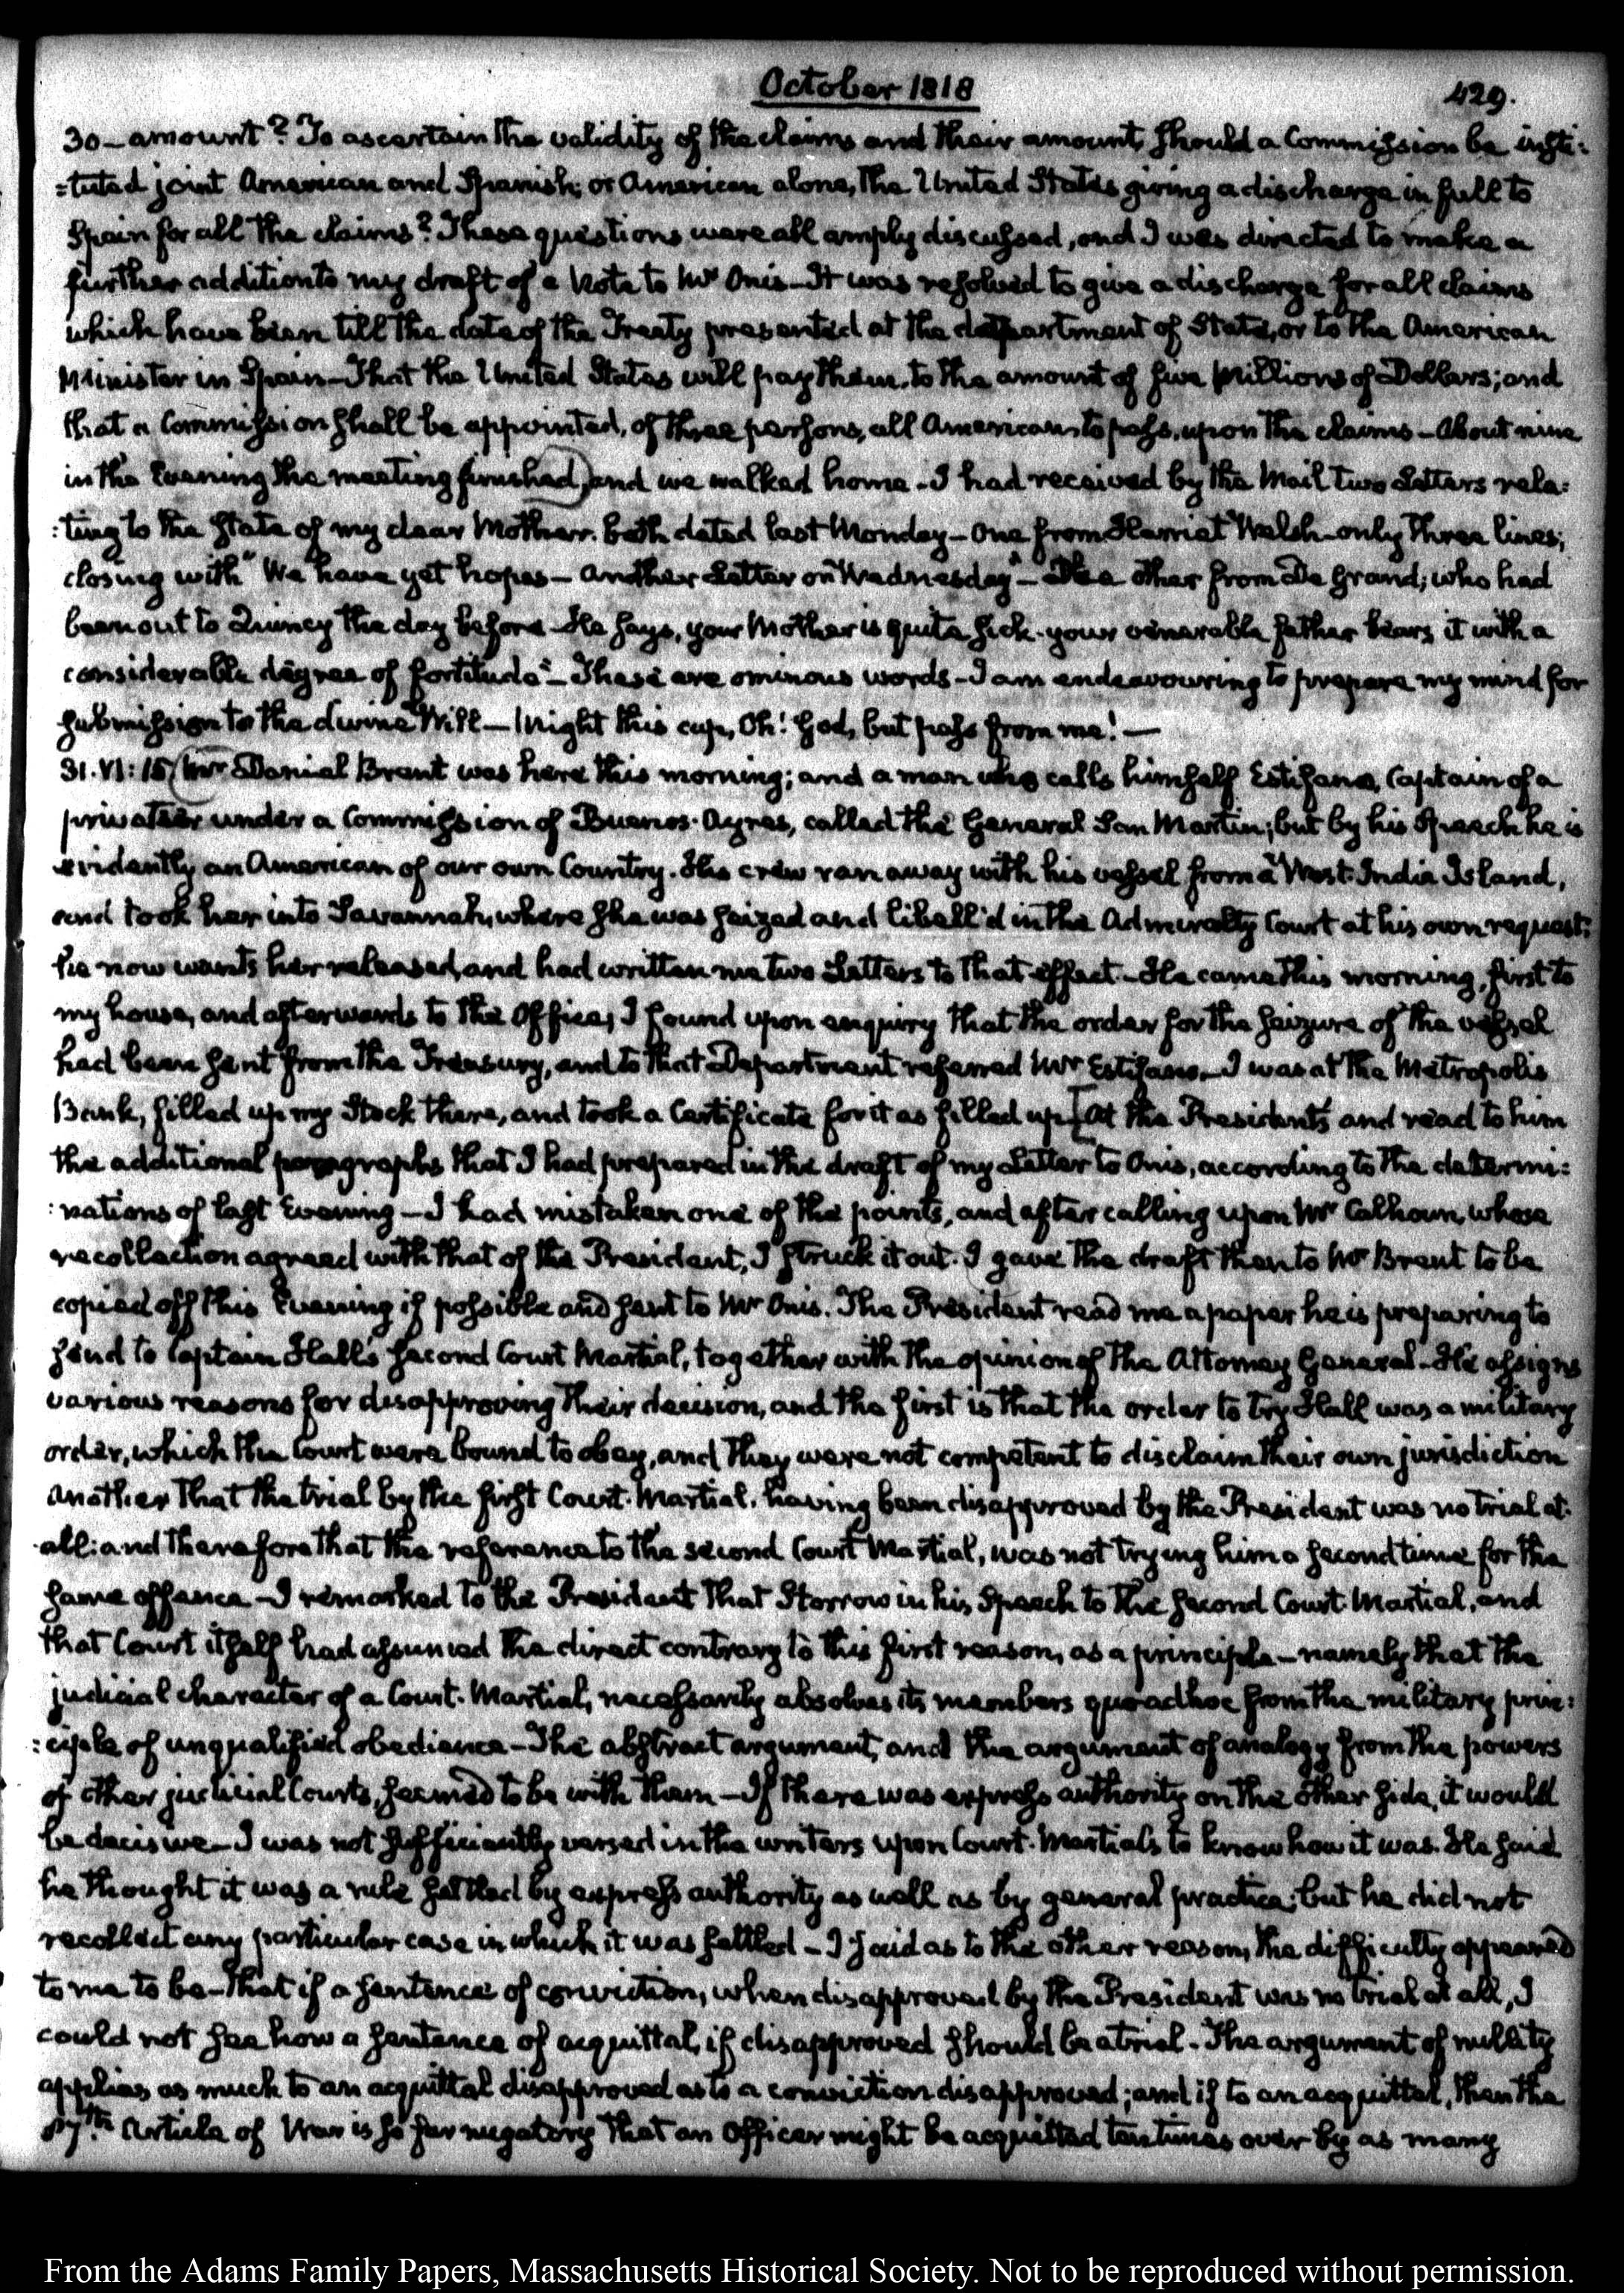 October 1818
429.
30 — amount? To ascertain the validity of the claims and their amount, should a Commission be insti:
:tuted joint American and Spanish; or American alone, the United States giving a discharge in full to
Spain for all the claims? These questions were all amply discussed, and I was directed to make a
further addition to my draft of a Note to Mr Onis — It was resolved to give a discharge for all claims
which have been till the date of the Treaty presented at the department of State, or to the American
Minister in Spain — That the United States will pay them, to the amount of five Millions of Dollars; and
that a Commission shall be appointed, of three persons, all Americans to pass, upon the claims — About nine
in the Evening the meeting finished, and we walked home — I had received by the Mail two Letters rela:
:ting to the state of my dear Mother. both dated last Monday — One from Harriet Welsh — only three lines;
closing with "We have yet hopes — another Letter on Wednesday" — The other from De Grand; who had
been out to Quincy the day before — He says, your Mother is quite sick. your venerable father bears it with a
considerable degree of fortitude" — These are ominous words — I am endeavouring to prepare my mind for
submission to the divine Will — Might this cup, Oh! God, but pass from me! —
31. VI:15 Mr Daniel Brent was here this morning; and a man who calls himself Estifano, Captain of a
privateer under a Commission of Buenos-Ayres, called the General San Martin; but by his Speech he is
evidently an American of our own Country. His crew ran away with his vessel from a West-India Island,
and took her into Savannah, where she was seized and libell'd in the Admiralty Court at his own request;
he now wants her released, and had written me two Letters to that effect — He came this morning, first to
my house, and afterwards to the Office, I found upon enquiry that the order for the seizure of the vessel
had been sent from the Treasury, and to that Department referred Mr Estifano — I was at the Metropolis
Bank, filled up my Stock there, and took a Certificate for it as filled up [At the President's and read to him
the additional paragraphs that I had prepared in the draft of my Letter to Onis, according to the determi:
:nations of last Evening — I had mistaken one of the points, and after calling upon Mr Calhoun, whose
recollection agreed with that of the President, I struck it out. I gave the draft then to Mr Brent to be
copied off this Evening if possible and sent to Mr Onis. The President read me a paper he is preparing to
send to Captain Hall's second Court Martial, together with the opinion of the Attorney General — He assigns
various reasons for disapproving their decision, and the first is that the order to try Hall was a military
order, which the Court were bound to obey, and they were not competent to disclaim their own jurisdiction
Another that the trial by the first Court-Martial, having been disapproved by the President was no trial at
all: and therefore that the reference to the second Court Martial, was not trying him a second time for the
same offence — I remarked to the President that Storrow in his Speech to the second Court-Martial, and
that Court itself had assumed the direct contrary to this first reason, as a principle — namely that the
judicial character of a Court-Martial, necessarily absolves its members quoad hoc from the military prin:
:ciple of unqualified obedience — The abstract argument, and the argument of analogy from the powers
of other judicial Courts, seemed to be with them — If there was express authority on the other side, it would
be decisive — I was not sufficiently versed in the writers upon Court-Martials to know how it was. He said
he thought it was a rule settled by express authority as well as by general practice; but he did not
recollect any particular case in which it was settled — I said as to the other reason, the difficulty appeared
to me to be — that if a sentence of conviction, when disapproved by the President was no trial at all, I
could not see how a sentence of acquittal, if disapproved should be a trial — The argument of nullity
applies as much to an acquittal disapproved as to a conviction disapproved; and if to an acquittal, then the
87th Article of War is so far nugatory that an Officer might be acquitted ten times over by as many
From the Adams Family Papers, Massachusetts Historical Society. Not to be reproduced without permission.